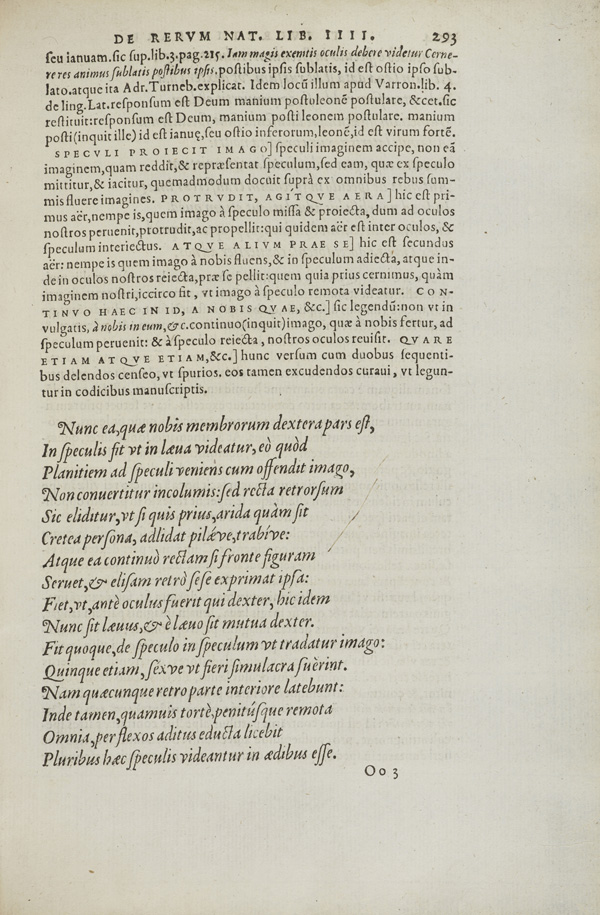 DE RERVM NAT. LIB. IIII. 293
seu ianuam. sic sup. lib. 3. pag. 215. Iam magis exemtis oculis debere videtur Cerne-
re res animus sublatis postibus ipsis, postibus ipsis sublatis, id est ostio ipso sub-
lato. atque ita Adr. Turneb. explicat. Idem locū illum apud Varron. lib. 4.
de ling. Lat. responsum est Deum manium postuleonē postulare, &cet. sic
restituit: responsum est Deum, manium posti leonem postulare. manium
posti (inquit ille) id est ianuę, seu ostio inferorum, leonē, id est virum fortē.
SPECVLI PROIECIT IMAGO] speculi imaginem accipe, non eā
imaginem, quam reddit, & repræsentat speculum, sed eam, quæ ex speculo
mittitur, & iacitur, quemadmodum docuit suprà ex omnibus rebus sum-
mis fluere imagines. PROTRVDIT, AGÍTQVE AERA] hic est pri-
mus aër, nempe is, quem imago à speculo missa & proiecta, dum ad oculos
nostros peruenit, protrudit, ac propellit: qui quidem aër est inter oculos, &
speculum interiectus. ATQVE ALIVM PRAE SE] hic est secundus
aër: nempe is quem imago à nobis fluens, & in speculum adiectā, atque in-
de in oculos nostros reiecta, præ se pellit: quem quia prius cernimus, quàm
imaginem nostri, iccirco fit, vt imago à speculo remota videatur. CON-
TINVO HAEC IN ID, A NOBIS QVAE, &c.] sic legendū: non vt in
vulgatis, à nobis in eum, &c. continuo (inquit) imago, quæ à nobis fertur, ad
speculum peruenit: & à speculo reiecta, nostros oculos reuisit. QVARE
ETIAM ATQVE ETIAM, &c.] hunc versum cum duobus sequenti-
bus delendos censeo, vt spurios. eos tamen excudendos curaui, vt legun-
tur in codicibus manuscriptis.
Nunc ea, quæ nobis membrorum dextera pars est,
In speculis fit vt in læua videatur, eò quòd
Planitiem ad speculi veniens cum offendit imago,
Non conuertitur incolumis: sed recta retrorsum
Sic eliditur, vt si quis prius, arida quàm sit
Cretea persona, adlidat pilǽve, trabíve:
Atque ea continuò rectam si fronte figuram
Seruet, & elisam retrò sese exprimat ipsa:
Fiet, vt, antè oculus fuerit qui dexter, hic idem
Nunc sit læuus, & è læuo sit mutua dexter.
Fit quoque, de speculo in speculum vt tradatur imago:
Quinque etiam, séxve vt fieri simulacra suërint.
Nam quæcunque retro parte interiore latebunt:
Inde tamen, quamuis tortè, penitúsque remota
Omnia, per flexos aditus educta licebit
Pluribus hæc speculis videantur in ædibus esse.
Oo 3